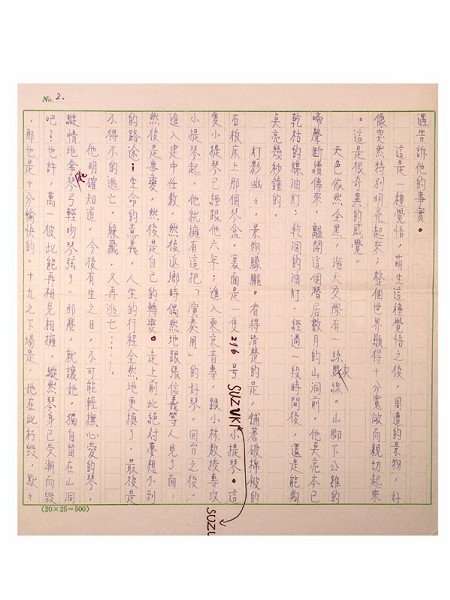 No. 2.
遇告訴他的事業。
這是一種覺悟，萌生這種覺悟之後，周遭的景物，好
像突然特別明亮起來；整個世界顯得十分寬敞而親切起來
。這是很奇異的感覺。
天色依然全黑，海天交際有一絲灰線，山腳下公雞的
啼聲斷續傳來。離開這個潛居數月的山洞前，他吹亮本已
乾枯的煤油灯；乾涸的油灯，經過一段時間後，還是能夠
吴亮幾秒鐘的。
灯影幽々，景物朦朧。看得清楚的是，鋪著破棉被的
石板床上那個琴盒，裏面是一隻216号SUZUKI小提琴。這
隻小提琴已經跟他六年；進入東京音專，跟小林教授專攻
小提琴起，他就擁有這把「演奏用」的好琴。回台之後，
進入建中任教，然後返鄉時偶然地跟張信義等人見了面，
然後是專賣，然後是自己的轉變。走上前此絕對夢想不到
的路途；生命的意義，人生的行程全然地更換了，最後是
不得不的逃亡，躲藏，又再逃亡……！
他明確知道，今後有生之日，不可能輕撫心愛的琴，
縱情地拿起琴弓輕吻琴弦了。那麼，就讓她，獨自留在山洞
吧！也許，萬一彼此能再相見相擁，縱然琴身已受潮而毀
，那也是十分愉快的。十九之下場是，她在此朽毀，點々
SUZU
(20×25=500)